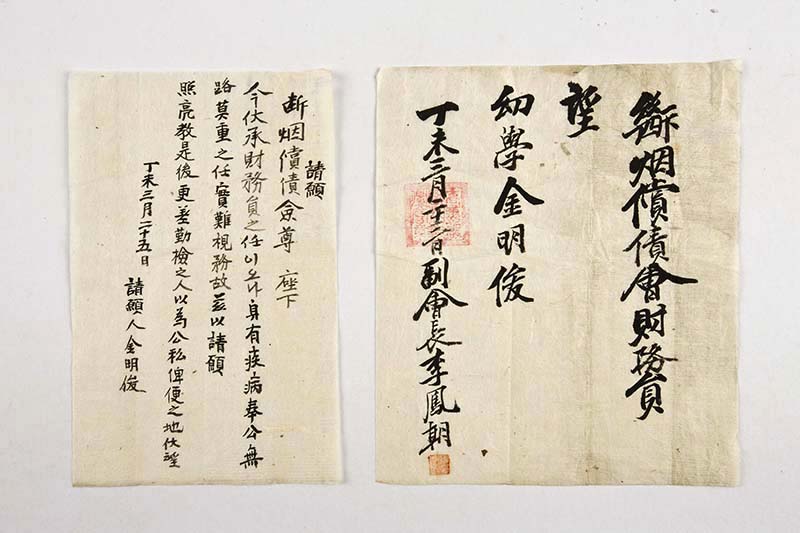 斷烟償債會財務員
望
幼學金明俊
丁未三月二十二日副會長李鳳朝
請願
断烟償債会尊 座下
今伏承財務員之任이오나 身有疾病奉公無
路莫重之任實難視務故玆以請願
照亮教是後更差勤檢之人以為公私俾便之地伏望
丁未三月二十五日
請願人金明俊